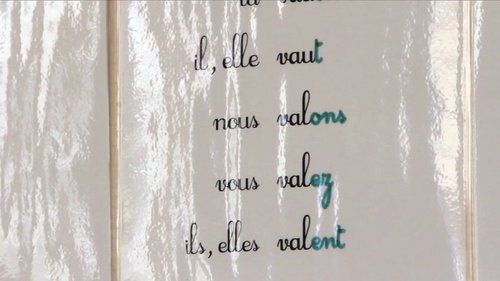 il, elle vaut
nous valons
vous valez
ils, elles valent